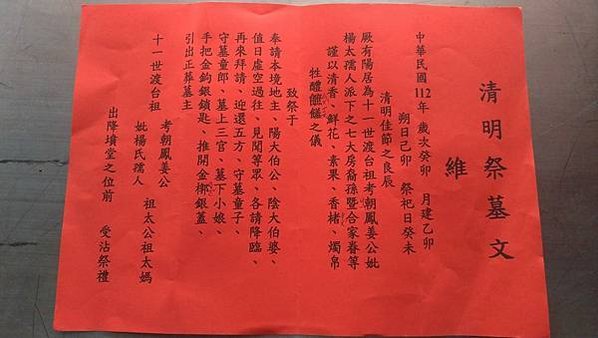 清明祭墓文
維
中華民國112年 歲次癸卯 月建乙卯
朔日己卯 祭祀日癸未
清明佳節之良辰
厥有陽居為十一世渡台祖考朝鳳姜公妣
楊太孺人派下之七大房裔孫暨合家眷等
謹以清香、鮮花、素果、香楮、燭帛
牲醴饌之儀
致祭于
奉請本境地主、陽大伯公、陰大伯婆、
值日虛空過往、見聞等眾、各請降臨、
再來拜請、迎還五方、守墓童子、
守墓童郎、墓上三官、墓下小娘、
手把金鈎銀鎖匙、推開金槨銀蓋、
引出正葬墓主
十一世渡台祖 考朝鳳姜公 祖太公祖太媽
妣楊氏孺人
出降墳堂之位前 受沾祭禮